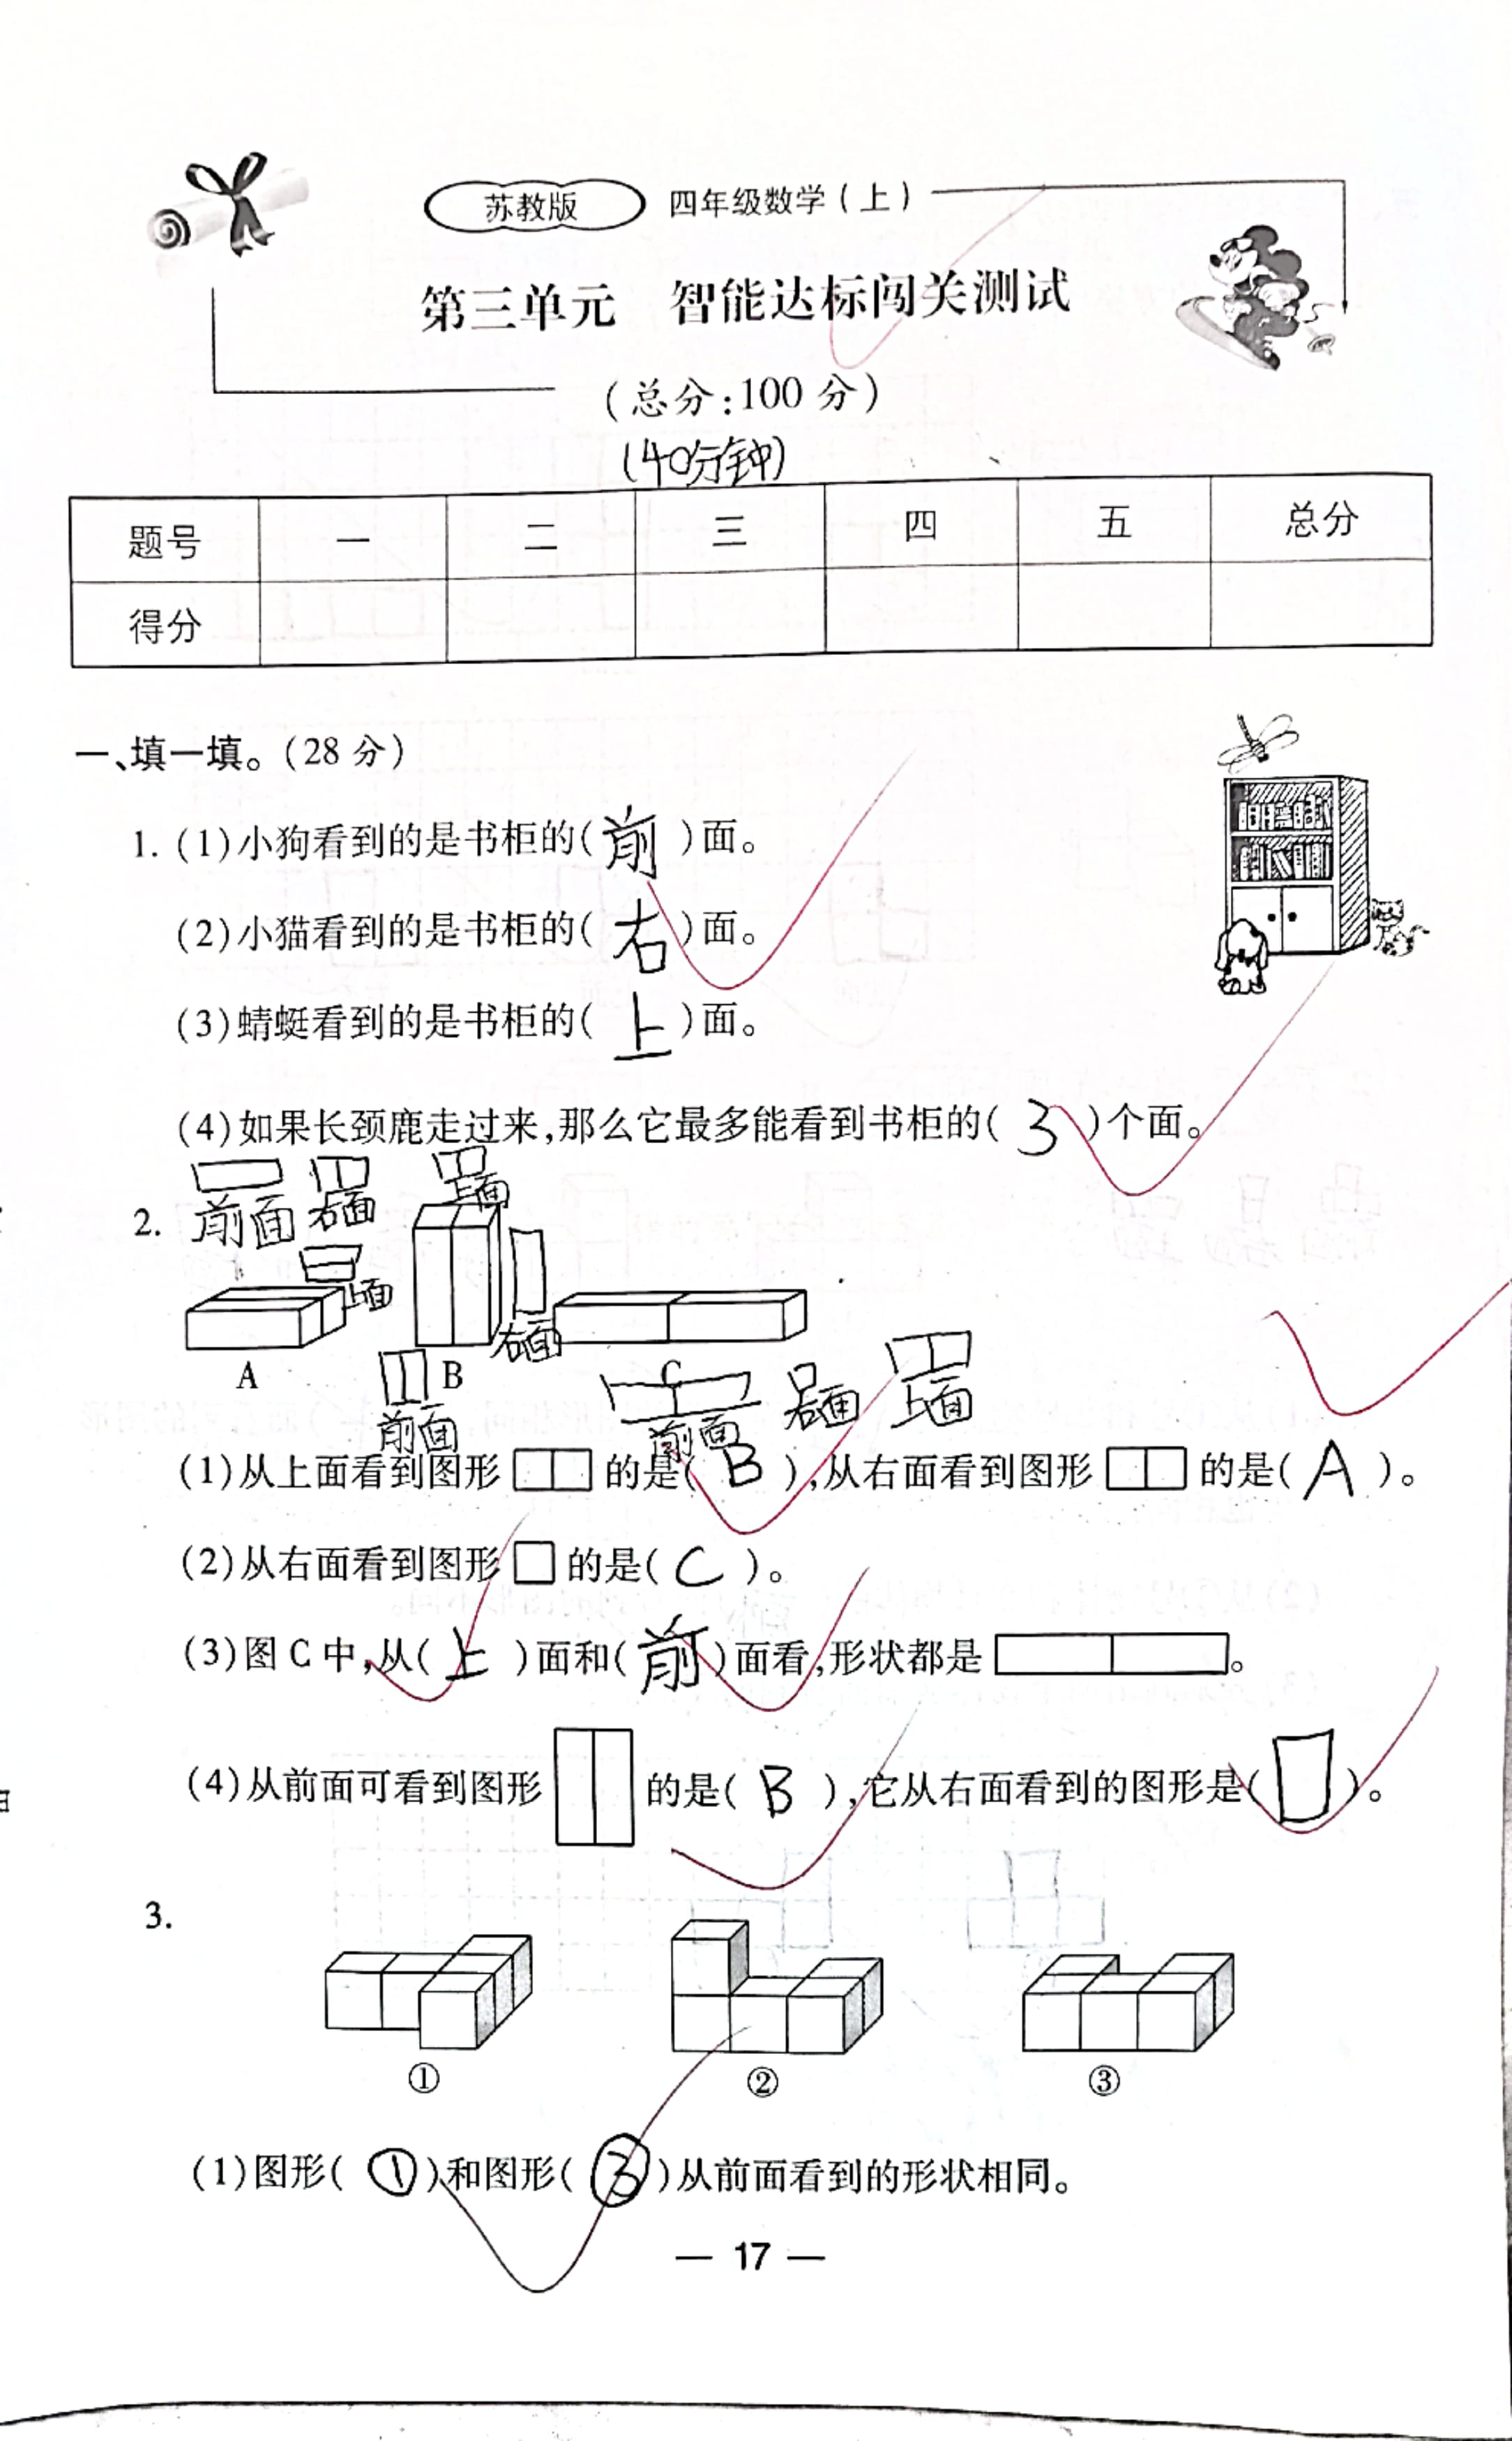 苏教版 四年级数学(上)
第三单元 智能达标闯关测试
(总分:100 分)
(40分钟)
题号 一 二 三 四 五 总分
得分
一、填一填。(28 分)
1. (1)小狗看到的是书柜的(前)面。
(2)小猫看到的是书柜的(右)面。
(3)蜻蜓看到的是书柜的(上)面。
(4)如果长颈鹿走过来,那么它最多能看到书柜的(3)个面。
2. 前面 右面 上面
上面
右面
A B C
前面 前面 右面 上面
(1)从上面看到图形 的是(B),从右面看到图形 的是(A)。
(2)从右面看到图形 的是(C)。
(3)图 C 中,从(上)面和(前)面看,形状都是 。
(4)从前面可看到图形 的是(B),它从右面看到的图形是( )。
3.
① ② ③
(1)图形(①)和图形(③)从前面看到的形状相同。
— 17 —